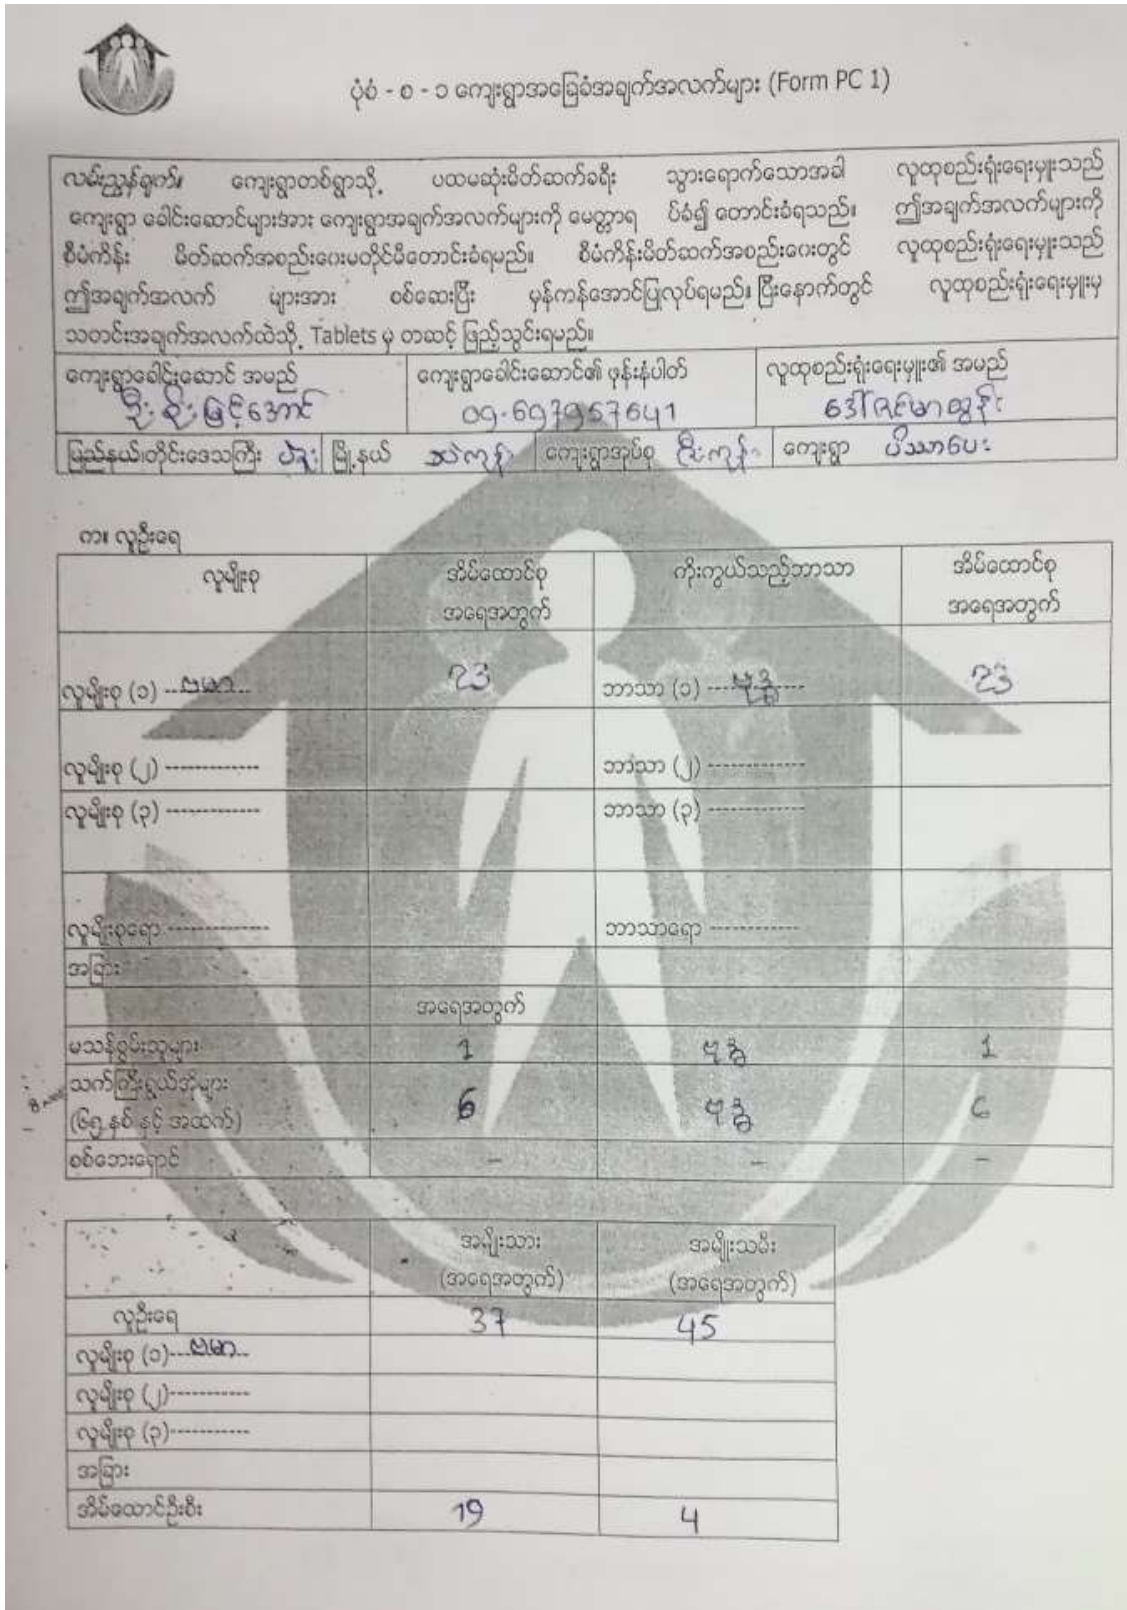 ပုံစံ - စ - ၁ ကျေးရွာအခြေခံအချက်အလက်များ (Form PC 1)
လမ်းညွှန်ချက်။ ကျေးရွာတစ်ရွာသို့ ပထမဆုံးမိတ်ဆက်ခရီး သွားရောက်သောအခါ လူထုစည်းရုံးရေးမှူးသည်
ကျေးရွာ ခေါင်းဆောင်များအား ကျေးရွာအချက်အလက်များကို မေတ္တာရ ပ်ခံ၍ တောင်းခံရသည်။ ဤအချက်အလက်များကို
စီမံကိန်း မိတ်ဆက်အစည်းဝေးမတိုင်မီတောင်းခံရမည်။ စီမံကိန်းမိတ်ဆက်အစည်းဝေးတွင် လူထုစည်းရုံးရေးမှူးသည်
ဤအချက်အလက် များအား စစ်ဆေးပြီး မှန်ကန်အောင်ပြုလုပ်ရမည်။ ပြီးနောက်တွင် လူထုစည်းရုံးရေးမှူးမှ
သတင်းအချက်အလက်ထဲသို့ Tablets မှ တဆင့် ဖြည့်သွင်းရမည်။
ကျေးရွာခေါင်းဆောင် အမည် ကျေးရွာခေါင်းဆောင်၏ ဖုန်းနံပါတ် လူထုစည်းရုံးရေးမှူး၏ အမည်
ဦးစိုးမြင့်အောင် 09-697957641 ဒေါ်ဇင်မာထွန်း
ပြည်နယ်၊တိုင်းဒေသကြီး ပဲခူး မြို့နယ် သဲကုန်း ကျေးရွာအုပ်စု ဇီးကုန်း ကျေးရွာ ပိဿာပေး
က။ လူဦးရေ
လူမျိုးစု အိမ်ထောင်စု ကိုးကွယ်သည့်ဘာသာ အိမ်ထောင်စု
အရေအတွက် အရေအတွက်
လူမျိုးစု (၁) ---ဗမာ--- 23 ဘာသာ (၁) ----ဗုဒ္ဓ---- 23
လူမျိုးစု (၂) ------------- ဘာသာ (၂) -------------
လူမျိုးစု (၃) ------------- ဘာသာ (၃) -------------
လူမျိုးစုရော ------------- ဘာသာရော ------------
အခြား
အရေအတွက်
မသန်စွမ်းသူများ 1 ဗုဒ္ဓ 1
သက်ကြီးရွယ်အိုများ
(၆၅ နှစ် နှင့် အထက်) 6 ဗုဒ္ဓ 6
စစ်ဘေးရှောင် - - -
အမျိုးသား အမျိုးသမီး
(အရေအတွက်) (အရေအတွက်)
လူဦးရေ 37 45
လူမျိုးစု (၁)---ဗမာ---
လူမျိုးစု (၂)-----------
လူမျိုးစု (၃)-----------
အခြား
အိမ်ထောင်ဦးစီး 19 4